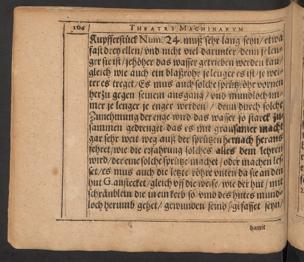 164 THEATRI MACHINARVM
Kupfferstück Num. 24. muß sehr lang seyn / etwa
fast drey ellen / vnd nicht viel darunter / denn je len=
ger sie ist / je höher das wasser getrieben werden kan /
gleich wie auch ein blaßrohr je lenger es ist / je wei=
ter es treget / Es mus auch solche sprütz röhr vornen
herzu gegen seinen ausgang / vnd mundloch im=
mer je lenger je enger werden / denn durch solche
Zunehmung der enge wird das wasser so starck zu=
sammen gedrenget das es mit grausamer macht
gar sehr weit weg aus der sprützen hernach heraus
fehret / wie die erfahrung solches alles dem lehren
wird / der eine solche sprütze machet / oder machen les=
set / es mus auch die letzte röhre vnten da sie an den
hut G. anstecket / gleich vff die weise / wie der hut / mit
schräublein die in ein kerb so vmb des hutes mund=
loch herumb gehet / gewunden seind / gefasset seyn /
damit